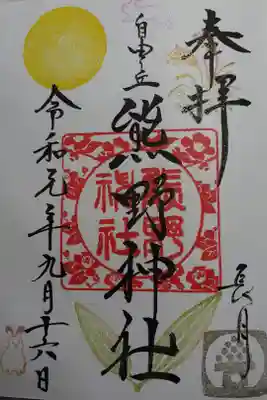 奉拝
長月
自由之丘
熊野神社
熊野
神社
令和元年九月十六日